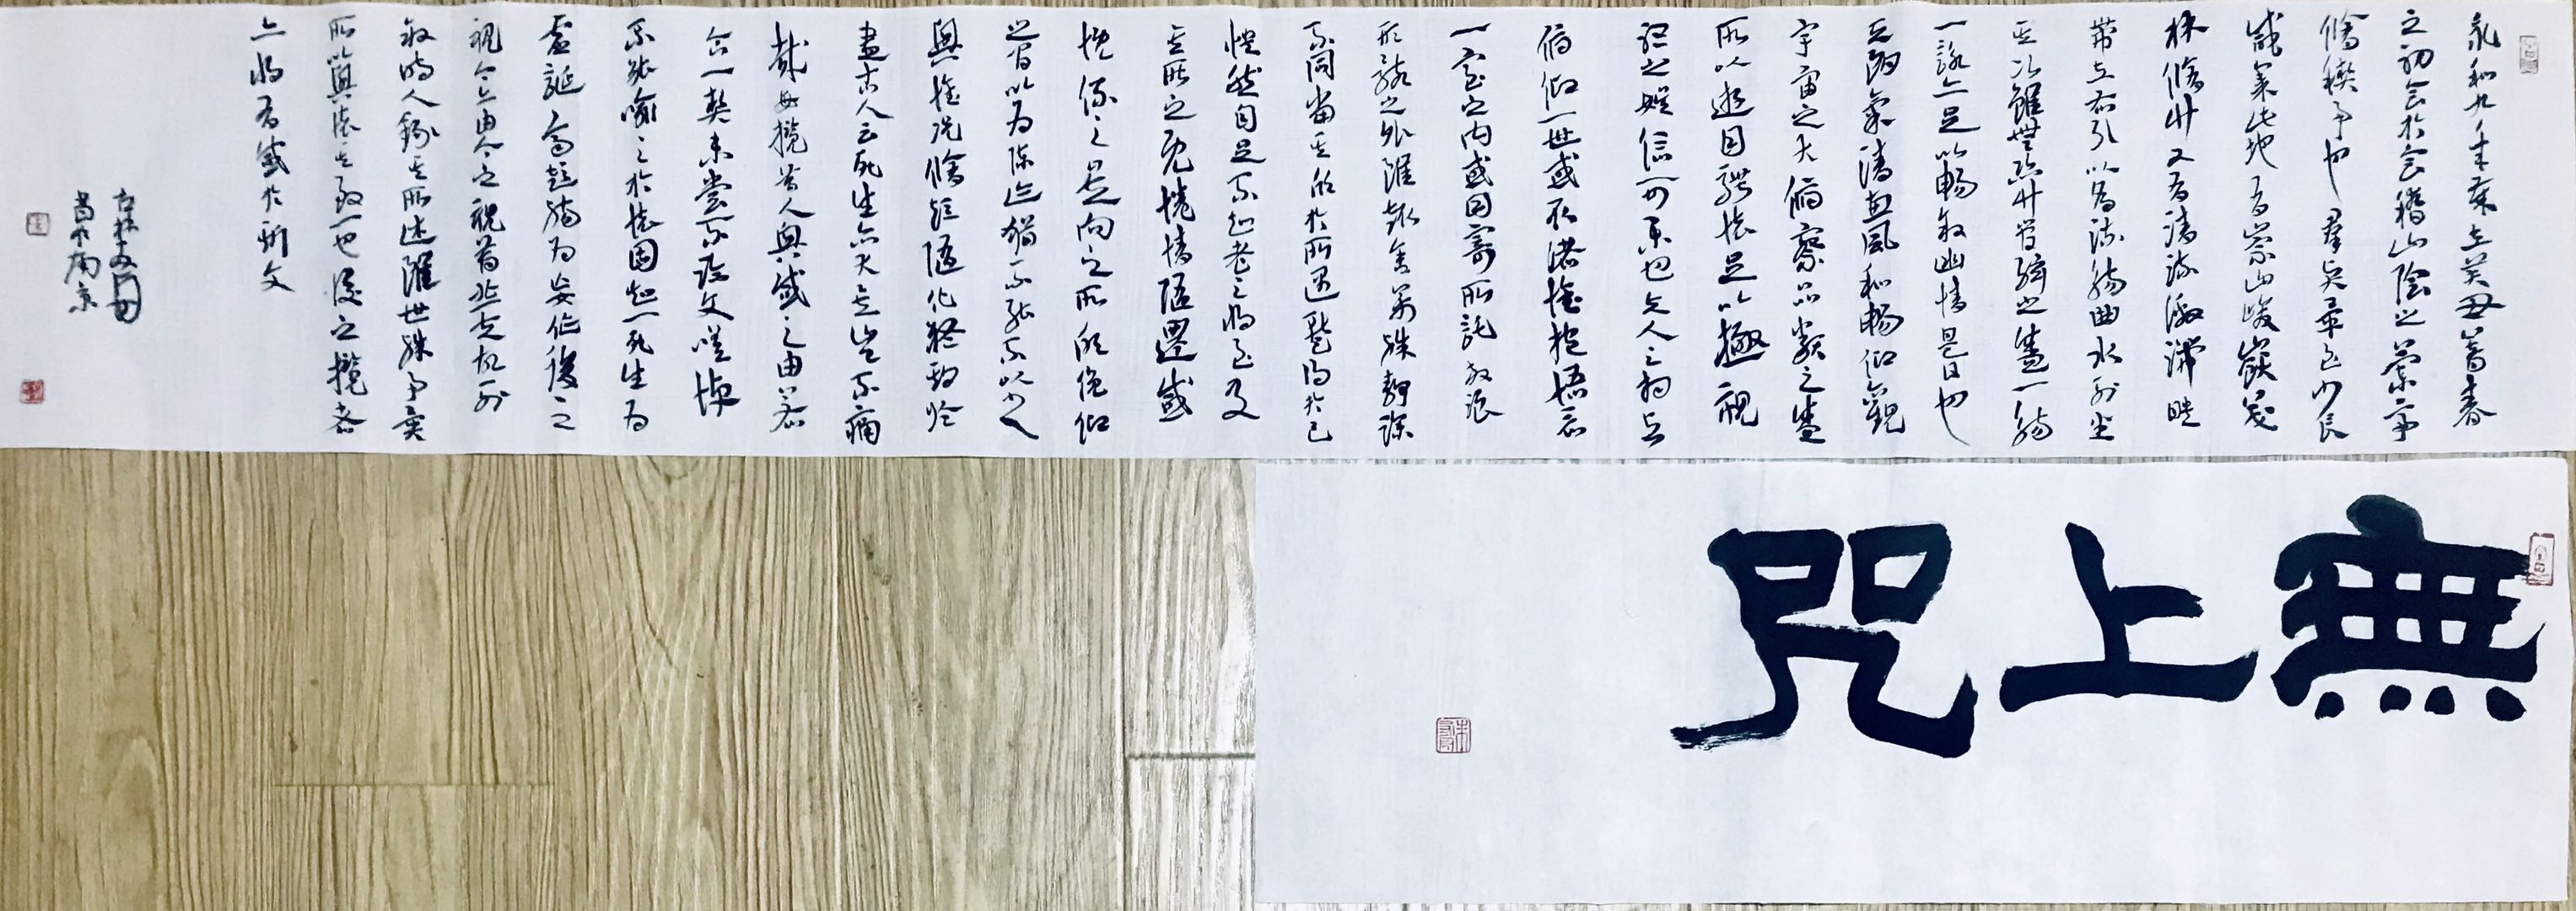 永和九年歲在癸丑暮春
之初会於会稽山陰之蘭亭
脩稧事也羣賢畢至少長
咸集此地有崇山峻嶺茂
林脩竹又有清流激湍暎
帶左右引以為流觴曲水列坐
其次雖無絲竹管弦之盛一觴
一詠亦足以暢叙幽情是日也
天朗氣清惠風和暢仰觀
宇宙之大俯察品類之盛
所以遊目騁懷足以極視
聽之娛信可樂也夫人之相与
俯仰一世或取諸懷抱悟言
一室之内或因寄所託放浪
形骸之外雖趣舍萬殊靜躁
不同當其欣於所遇暫得於己
怏然自足不知老之將至及
其所之既惓情隨遷感
慨係之矣向之所欣俛仰
之間以為陳迹猶不能不以之
興懷況脩短隨化終期於
盡古人云死生亦大矣豈不痛
哉每攬昔人興感之由若
合一契未嘗不臨文嗟悼
不能喻之於懷固知一死生為
虛誕齊彭殤為妄作後之
視今亦由今之視昔悲夫故列
叙時人錄其所述雖世殊事異
所以興懷其致一也後之攬者
亦將有感於斯文
無上咒